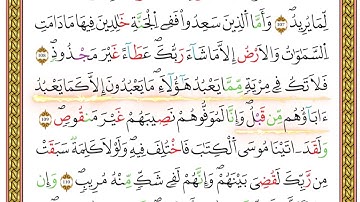 لِّمَا يُرِيدُ ۝١٠٧ وَأَمَّا ٱلَّذِينَ سَعِدُوا۟ فَفِى ٱلْجَنَّةِ خَٰلِدِينَ فِيهَا مَا دَامَتِ
ٱلسَّمَٰوَٰتُ وَٱلْأَرْضُ إِلَّا مَا شَآءَ رَبُّكَ عَطَآءً غَيْرَ مَجْذُوذٍ ۝١٠٨
فَلَا تَكُ فِى مِرْيَةٍ مِّمَّا يَعْبُدُ هَٰٓؤُلَآءِ مَا يَعْبُدُونَ إِلَّا كَمَا يَعْبُدُ
ءَابَآؤُهُم مِّن قَبْلُ وَإِنَّا لَمُوَفُّوهُمْ نَصِيبَهُمْ غَيْرَ مَنقُوصٍ ۝١٠٩
وَلَقَدْ ءَاتَيْنَا مُوسَى ٱلْكِتَٰبَ فَٱخْتُلِفَ فِيهِ وَلَوْلَا كَلِمَةٌ سَبَقَتْ
مِن رَّبِّكَ لَقُضِىَ بَيْنَهُمْ وَإِنَّهُمْ لَفِى شَكٍّ مِّنْهُ مُرِيبٍ ۝١١٠ وَإِن